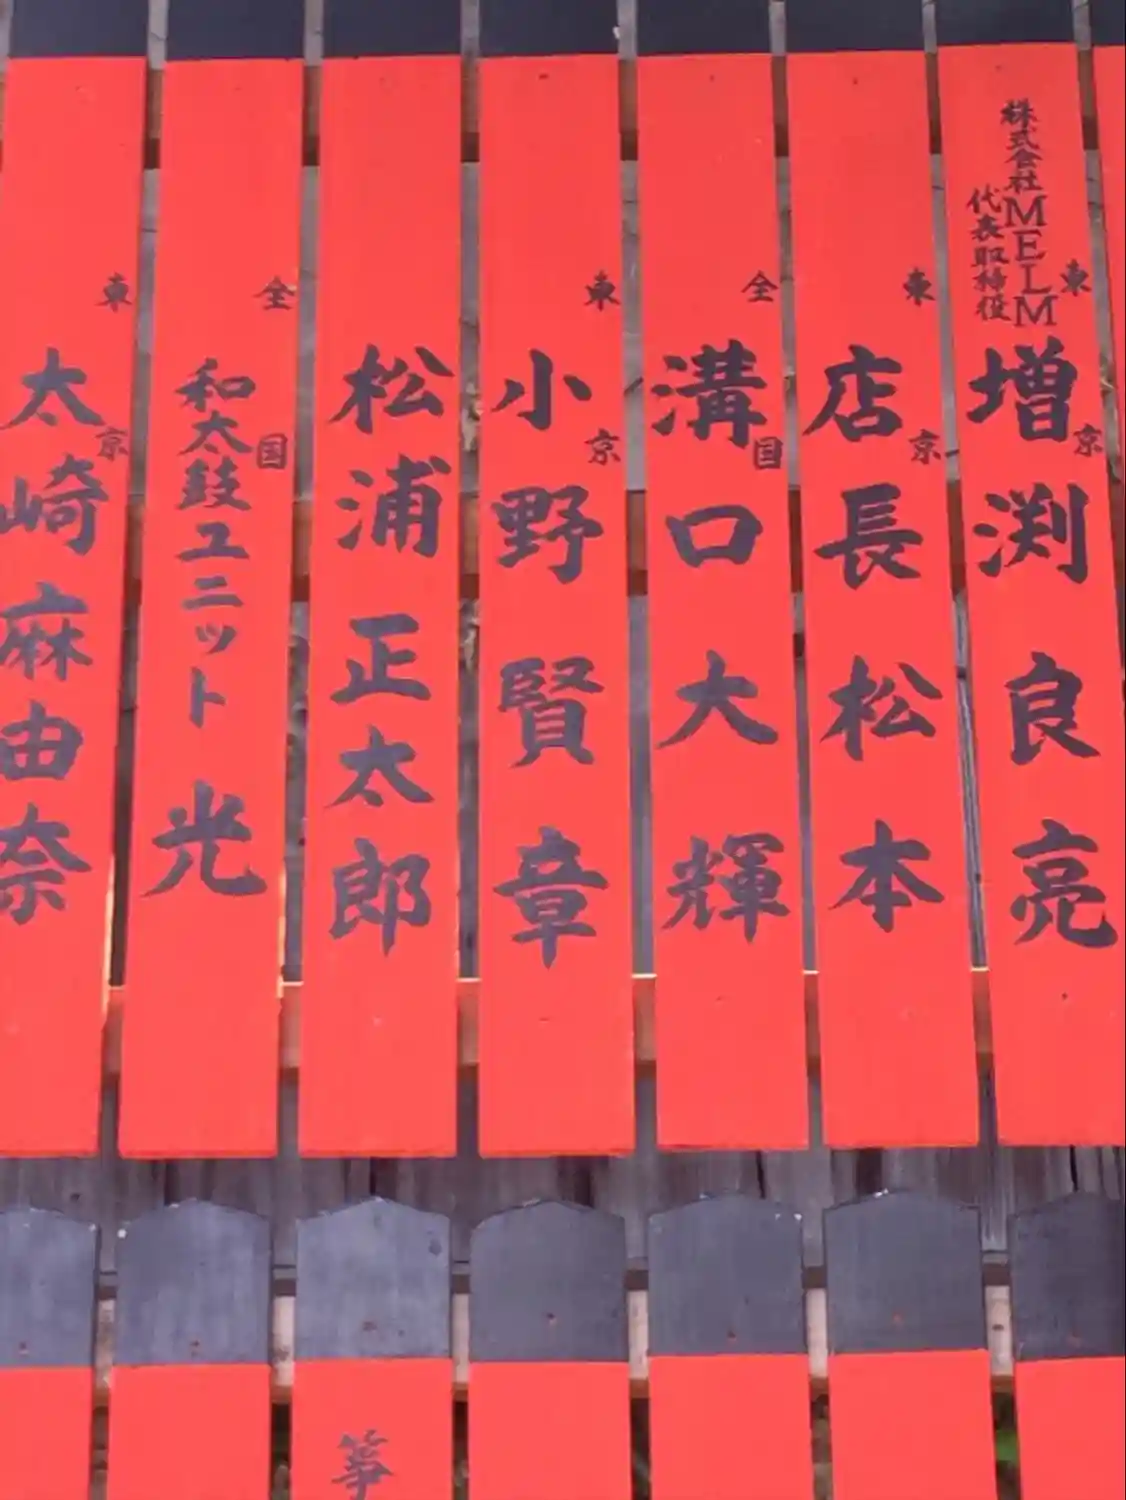 東京
株式会社MELM
代表取締役
増渕良亮
東京
店長松本
全国
溝口大輝
東京
小野賢章
松浦正太郎
全国
和太鼓ユニット光
東京
太崎麻由奈
箏